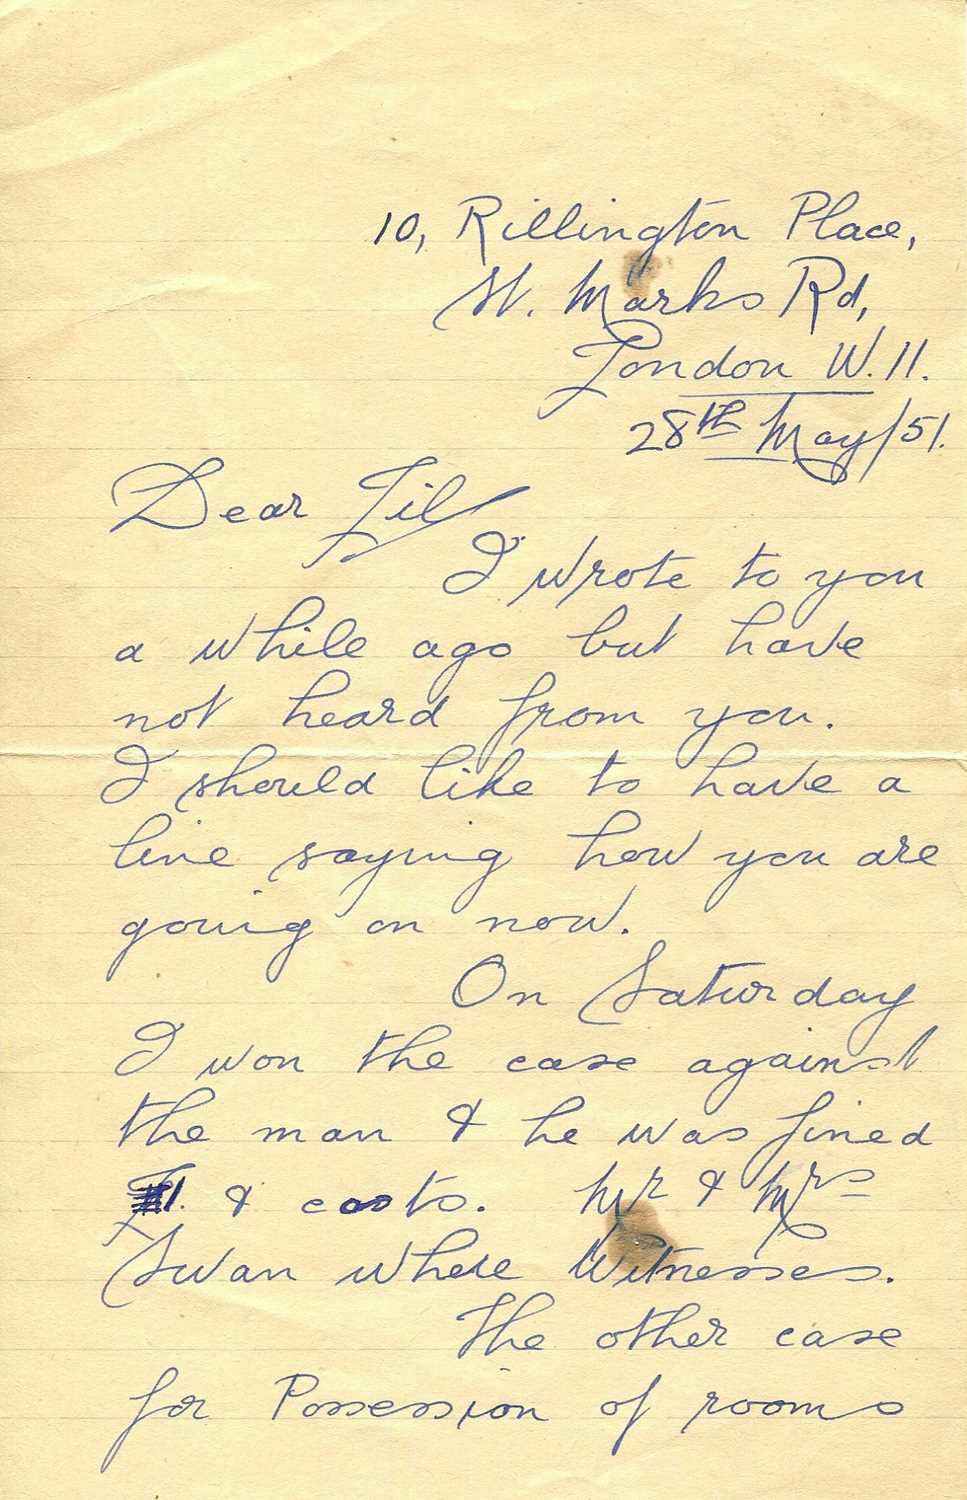 10, Rillington Place,
St. Marks Rd,
London W. 11.
28th May/51.
Dear Lil
I wrote to you
a while ago but have
not heard from you.
I should like to have a
line saying how you are
going on now.
On Saturday
I won the case against
the man & he was fined
£1. & costs. Mr & Mrs
Swan where Witnesses.
The other case
for Possession of rooms